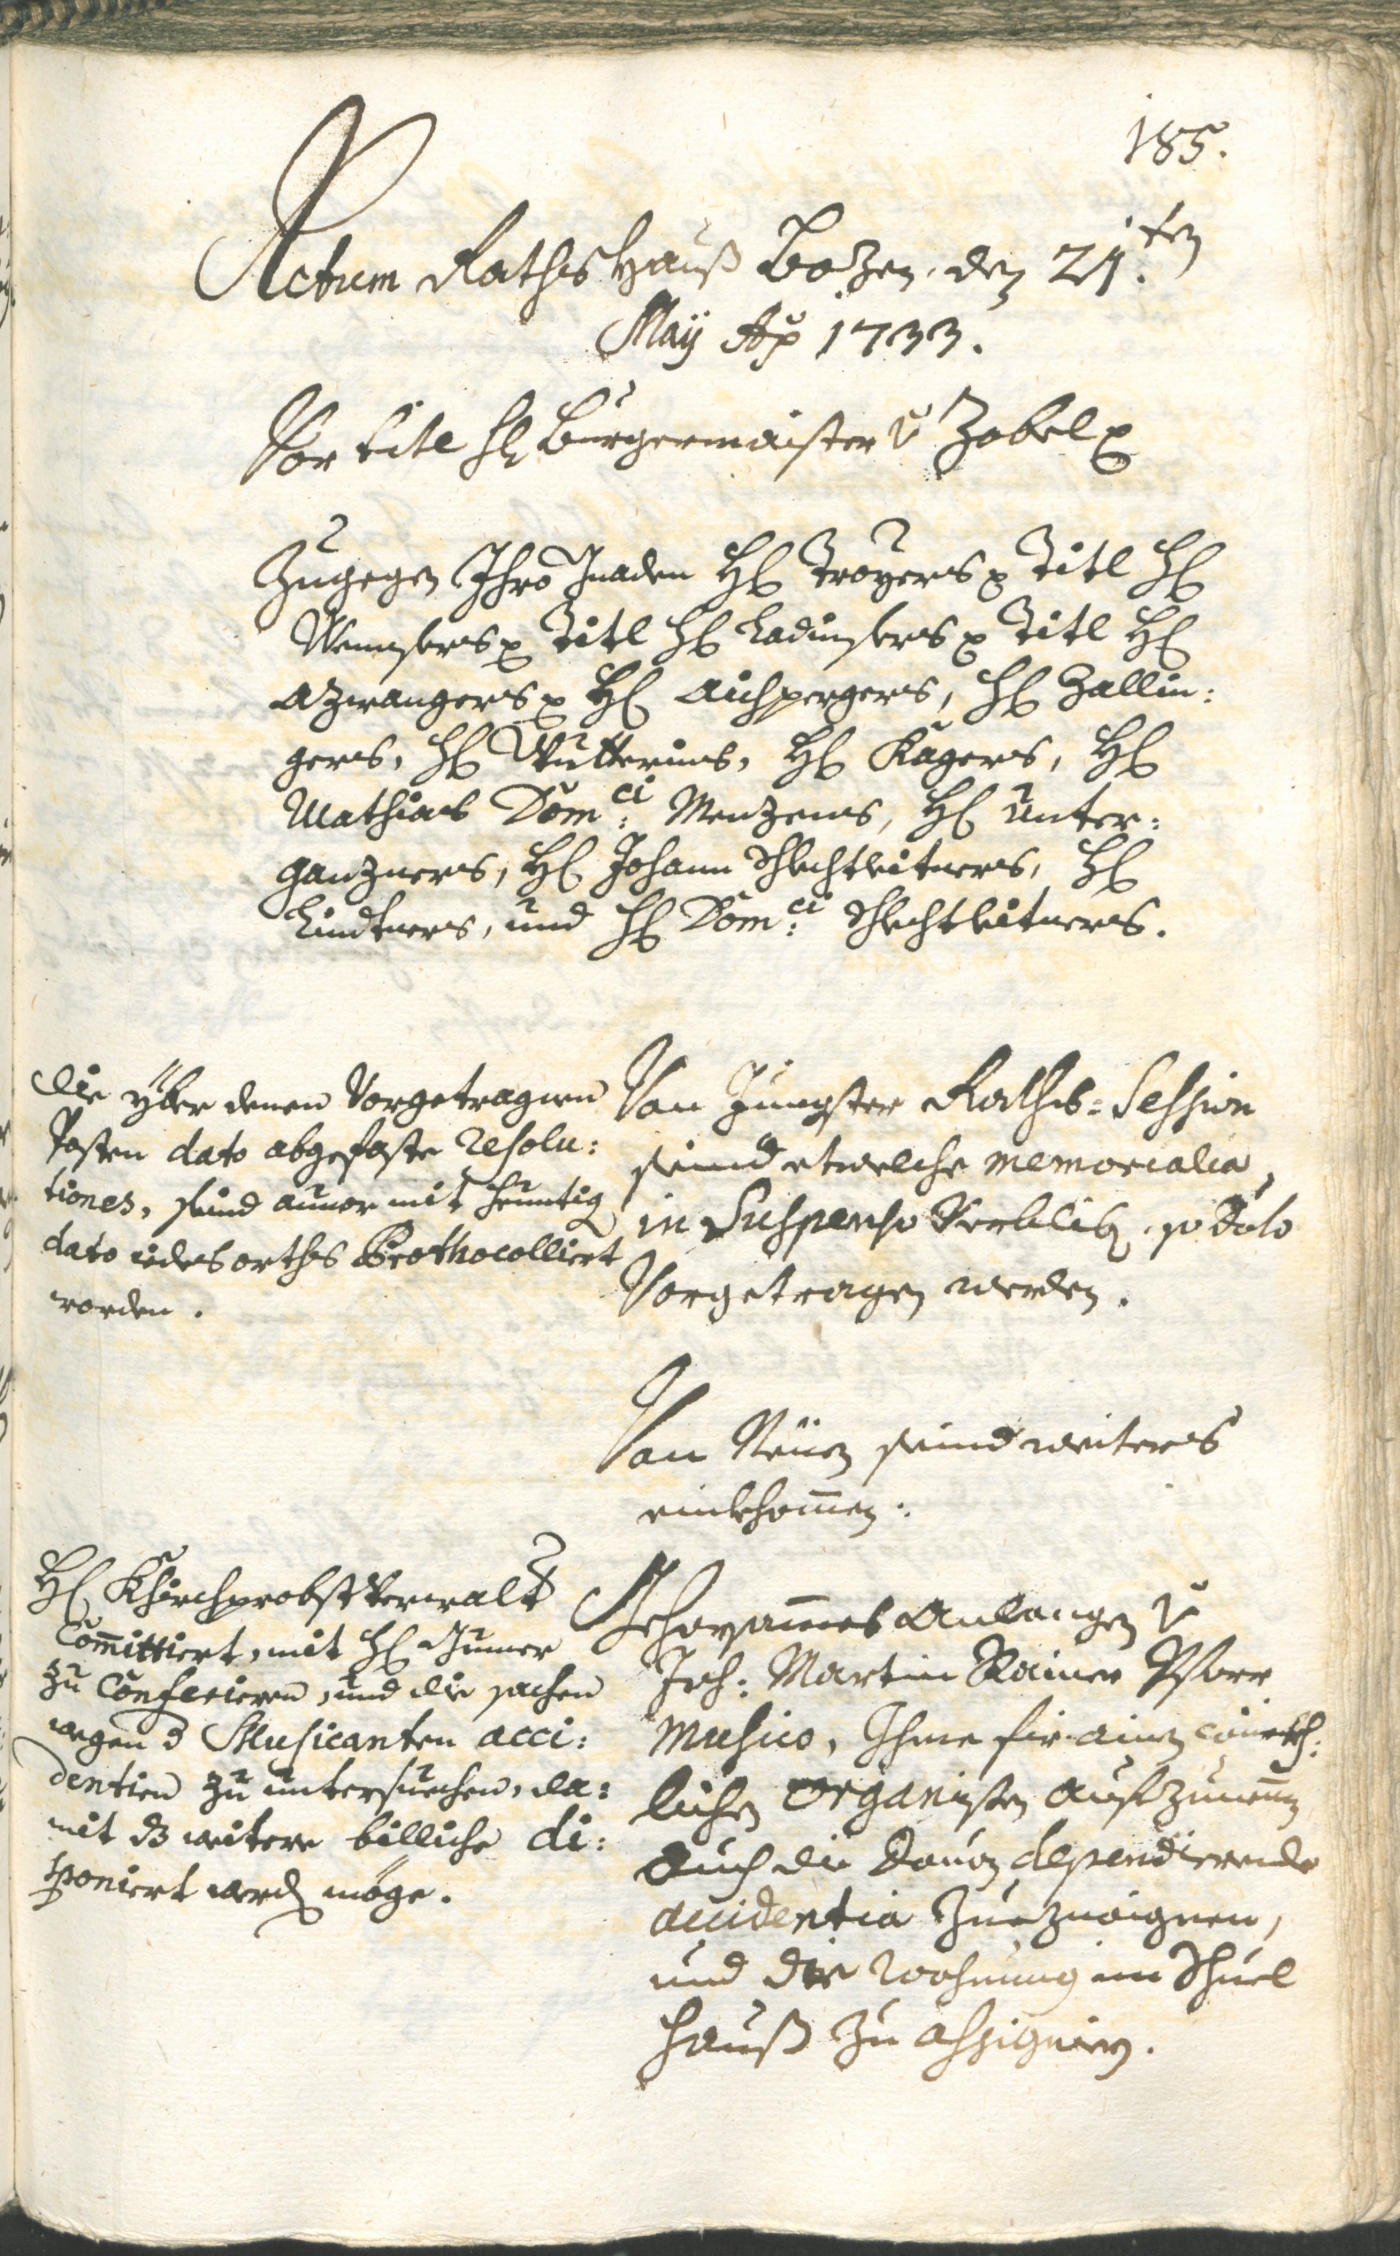 185.
Actum Raths Hauß Bozen, den 21.ten
Maÿ Ao 1733.
Vor titl H: Burgermaister v Zobel p
Zugegen Ihro Gnaden H: Troyers p Titl H:
Wenserß p Titl H: Ladurners p Titl H:
Azwangers p H: Aichpergers, H: Zallin:
gers, H: Mutterins, H: Kagers, H:
Mathias Dom:ci Menzens, H: Unter:
ganzners, H: Johann Schlechtleitners, H:
Lindtners, und H: Dom:ci Schlechtleitners.
Die yber denen Vorgetragnen
Posten dato abgefaste resolu:
tiones, seind anvor mit heuntig
dato iedes orths Prothocolliert
worden.
Von Jungster Raths-Session
seind etwelche memorialia,
in Suspenso Verblibn, so Dato
Vorgetragen werden.
Von Neuen seind weiters
einkhomen:
H: Khirchprobst Verwalt
Committiert, mit H:
zu Conferieren, und die sachen
wegen d Musicanten acci:
dentien zu untersuechen, da:
mit dz weitere billiche di:
sponiert werdn möge.
Gehorsammes Anlangen v
Joh: Martin Rainer Pfarr
Musico, Ihme fir ainen
lichen Organisten aufzunemen
auch die Davon dependierende
accidentia Zuezuaignen,
und die Wohnung im Schuel
Hauß zu assignirn.